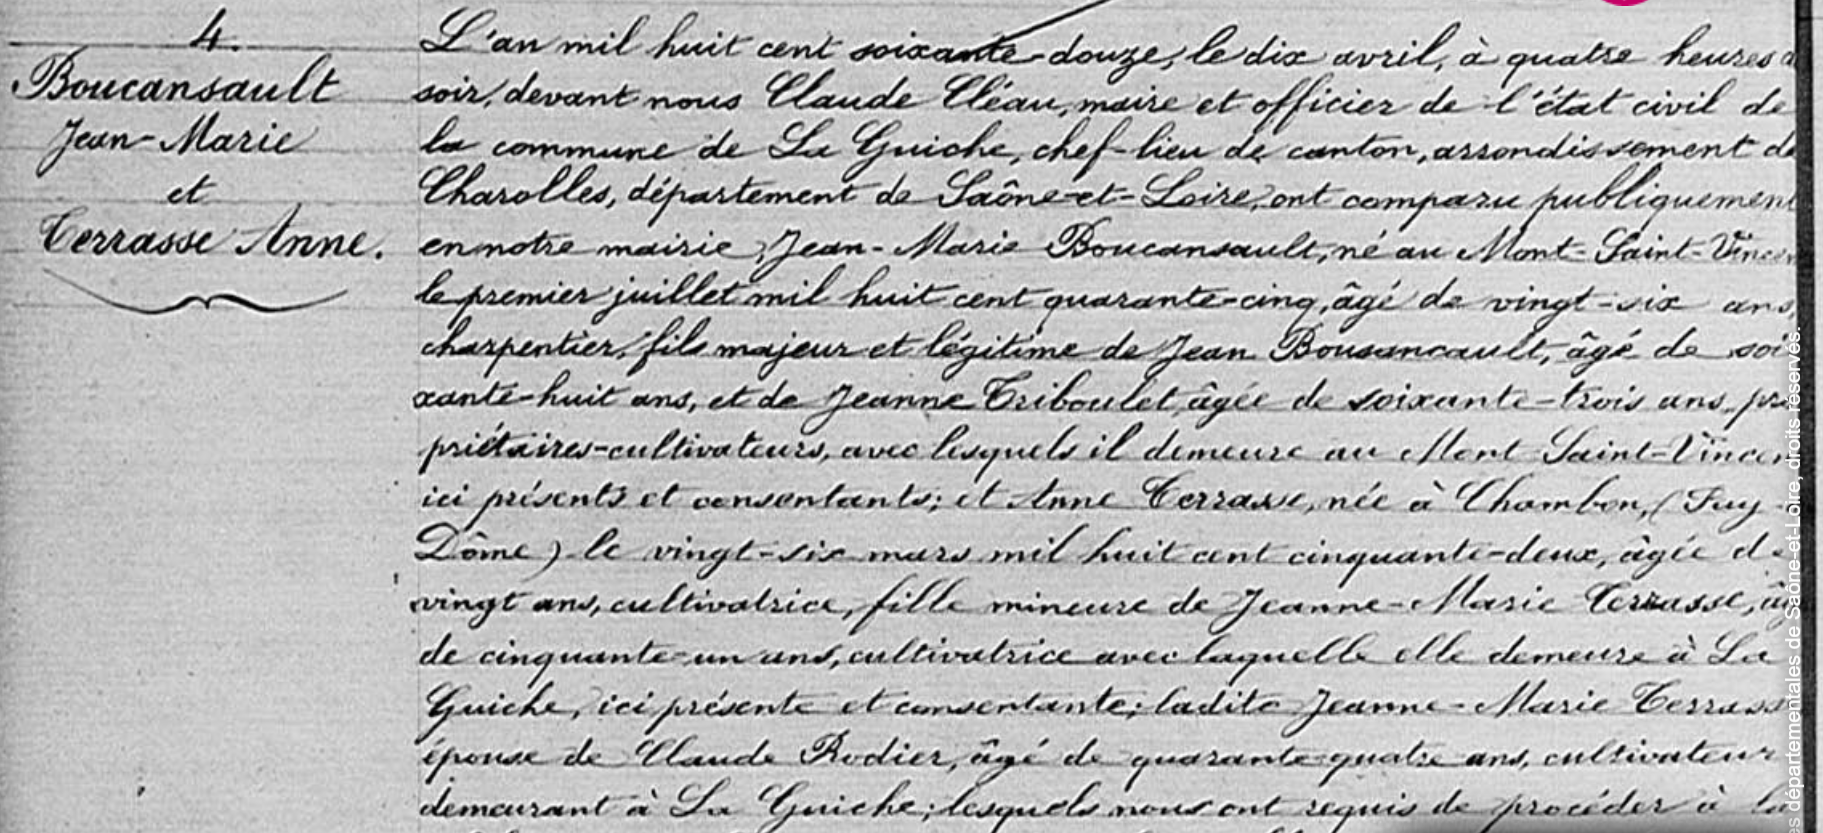 4.
Boucansault
Jean-Marie
et
Terrasse Anne.
L'an mil huit cent soixante-douze, le dix avril, à quatre heures d
soir, devant nous Claude Cléau, maire et officier de l'état civil de
la commune de La Guiche, chef-lieu de canton, arrondissement de
Charolles, département de Saône-et-Loire, ont comparu publiquement
en notre mairie, Jean-Marie Boucansault, né au Mont-Saint-Vincen
le premier juillet mil huit cent quarante-cinq, âgé de vingt-six ans,
charpentier, fils majeur et légitime de Jean Bousancault, âgé de soi
xante-huit ans, et de Jeanne Triboulet, âgée de soixante-trois ans, pro
priétaires-cultivateurs, avec lesquels il demeure au Mont-Saint-Vincen
ici présents et consentants; et Anne Terrasse, née à Chambon, (Puy-
Dôme) le vingt-six mars mil huit cent cinquante-deux, âgée de
vingt ans, cultivatrice, fille mineure de Jeanne-Marie Terrasse, âg
de cinquante-un ans, cultivatrice avec laquelle elle demeure à La
Guiche, ici présente et consentante; ladite Jeanne-Marie Terrass
épouse de Claude Rodier, âgé de quarante-quatre ans, cultivateur
demeurant à La Guiche; lesquels nous ont requis de procéder à la
es départementales de Saône-et-Loire, droits réservés.